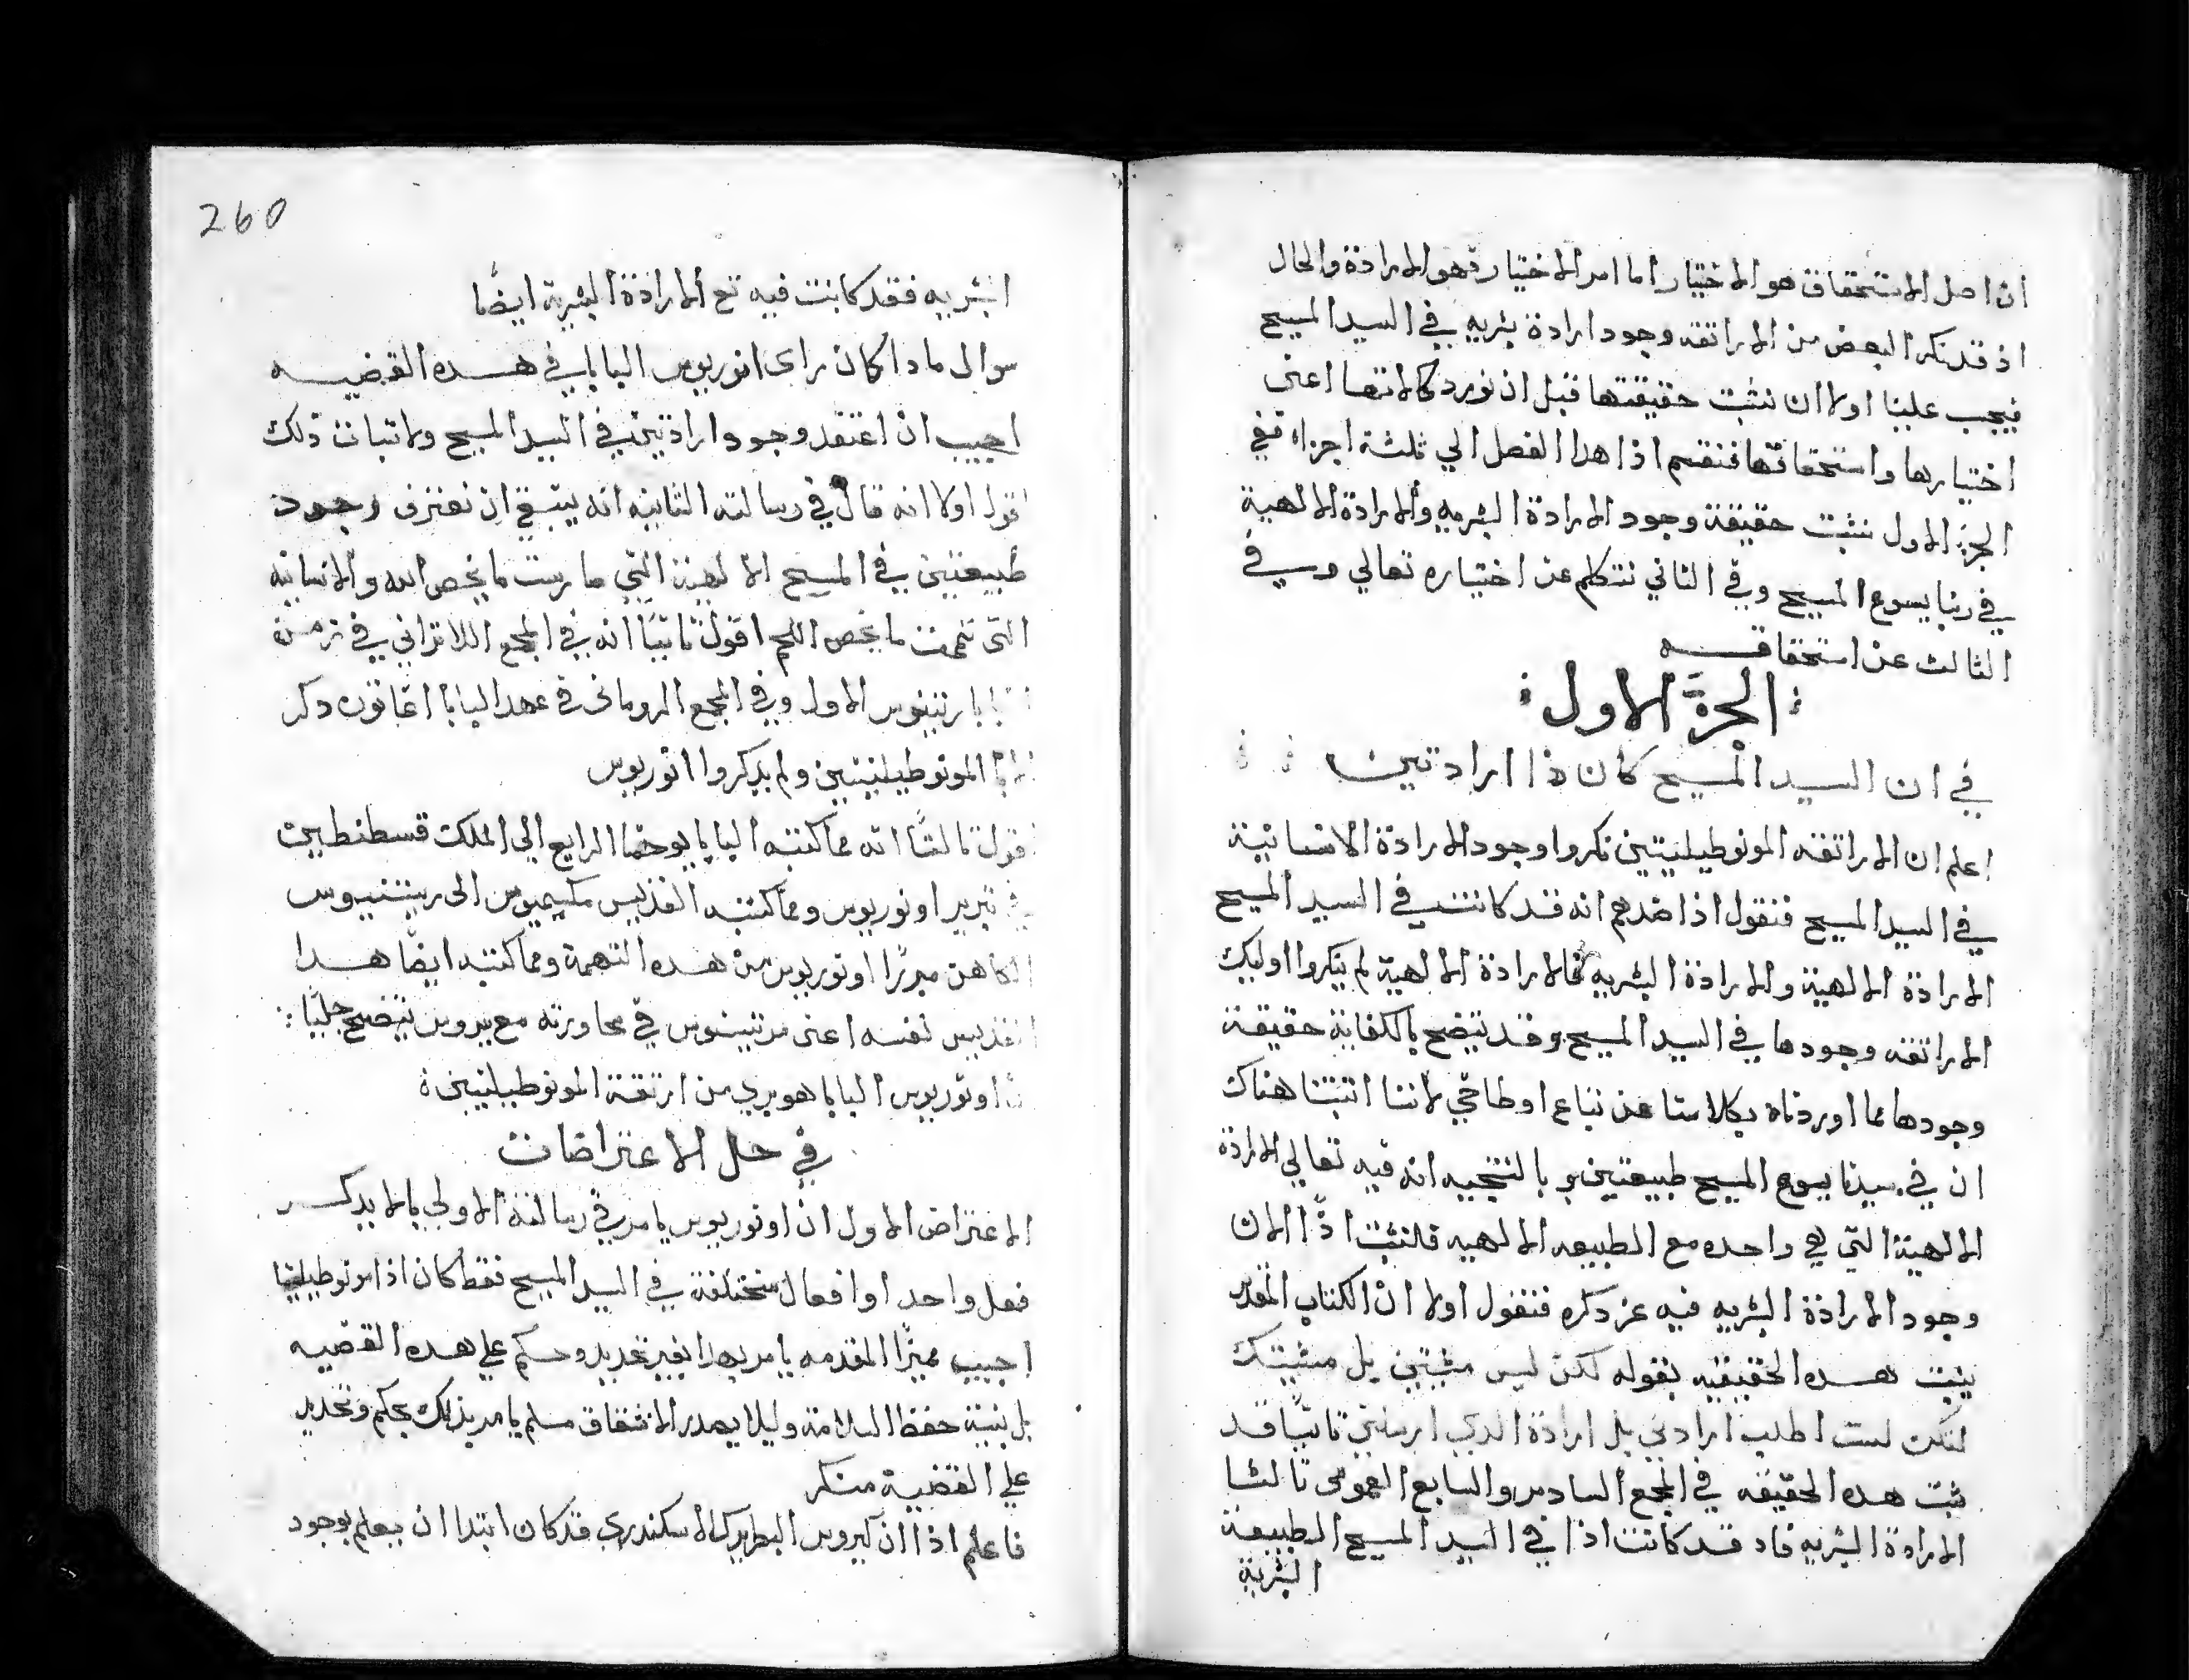 ان اصل الاستحقاق هو الاختيار اما امر الاختيار فهو الارادة والحال
اذ قد نكر البعض من الاراتقه وجود ارادة بشريه في السيد المسيح
فيجب علينا اولا ان نثبت حقيقتها قبل ان نورد كمالاتها اعني
اختيارها واستحقاقها فنقسم اذا هدا الفصل الي ثلثة اجزاء ففي
الجزء الاول نثبت حقيقة وجود الارادة البشريه والارادة الالهية
في ربنا يسوع المسيح وفي الثاني نتكلم عن اختياره تعالي وفي
الثالث عن استحقاقه
الجزء الاول
في ان السيد المسيح كان ذا ارادتين
اعلم ان الاراتقه المونوطيليتيين نكروا وجود الارادة الانسانية
في السيد المسيح فنقول اذا ضدهم انه قد كانت في السيد المسيح
الارادة الالهية والارادة البشريه فالارادة الالهية لم ينكروا اوليك
الاراتقه وجودها في السيد المسيح وقد يتضح بالكفاية حقيقة
وجودها مما اوردناه بكلامنا عن تباع اوطاخي لاننا اثبتنا هناك
ان في سيدنا يسوع المسيح طبيعتين وبالنتيجه انه فيه تعالي الارادة
الالهية التي هي واحده مع الطبيعه الالهيه فلنثبت اذًا الان
وجود الارادة البشريه فيه عز دكره فنقول اولا ان الكتاب المقدس
يثبت هده الحقيقه بقوله لكن ليس مشيتي بل مشيتك
لكن لست اطلب ارادتي بل ارادة الدي ارسلني ثانيًا قد
ثبت هده الحقيقه في المجمع السادس والسابع العمومي ثالثا
الارادة البشريه فاد قد كانت اذا في السيد المسيح الطبيعة
البشرية
260
البشريه فقد كانت فيه مع الارادة البشرية ايضًا
سوال مادا كان راى انوريوس البابا في هده القضيه
اجيب ان اعتقد وجود ارادتين في السيد المسيح ولاتبات ذلك
اقول اولا انه قال في رسالته الثانيه انه ينبغي ان نعترف وجود
طبيعتين في المسيح الالهية التي مارست ما يخص الله والانسانيه
التي تممت ما يخص اللحم اقول ثانيًا انه في المجمع اللاتراني في زمن
مرتينوس الاول وفي المجمع الروماني في عهد البابا اغاتون دكر
المونوطيليتيين ولم يدكروا انوريوس
اقول ثالثًا انه مما كتبه البابا يوحنا الرابع الي الملك قسطنطين
في تبرير اونوريوس ومما كتبه القديس مكسيموس الى
الكاهن مبررًا اونوريوس من هده التهمة ومما كتبه ايضًا هدا
القديس نفسه اعني في محاورته مع بيروس يتضح جليًا
ان اونوريوس البابا هو بري من ارتقة المونوطيليتيين
في حل الاعتراضات
الاعتراض الاول ان اونوريوس يامر في رسالته الاولي بالا يدكر
فعل واحد او افعال مختلفة في السيد المسيح فقط كان اذا مونوطيليتيا
اجيب مميزًا المقدمه يامر بهدا بغير تحديد وحكم علي هده القضيه
بل بنية حفظ السلامة وليلا يصدر الانشقاق مسلم يامر بذلك بحكم وتحديد
علي القضية منكر
فاعلم اذا ان كيروس البطريرك الاسكندري قد كان ابتدا ان يعلم بوجود